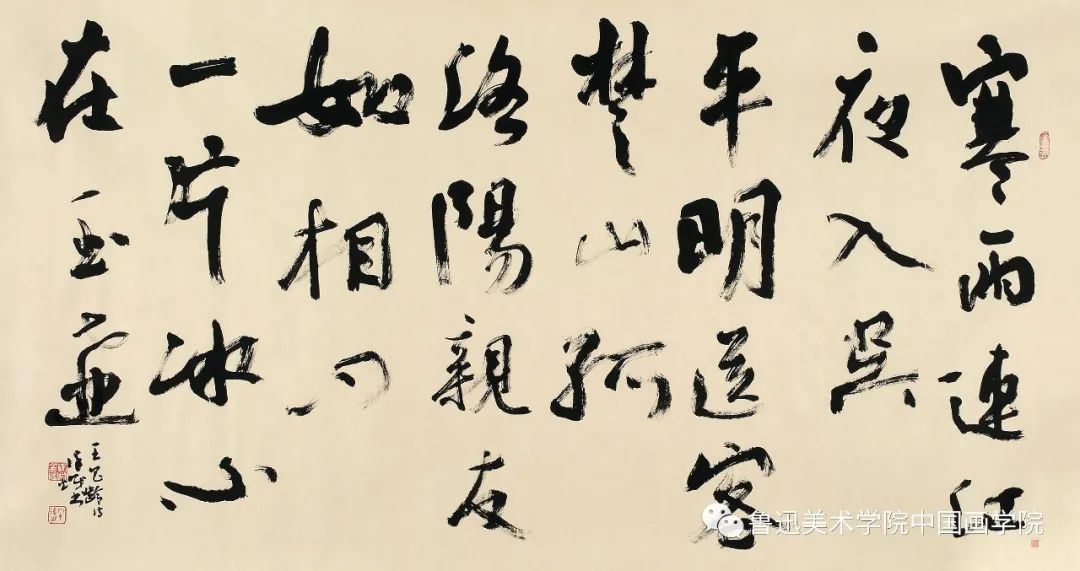 寒雨連江
夜入吳
平明送客
楚山孤
洛陽親友
如相問
一片冰心
在玉壺
王昌齡詩
書
鲁迅美术学院中国画学院